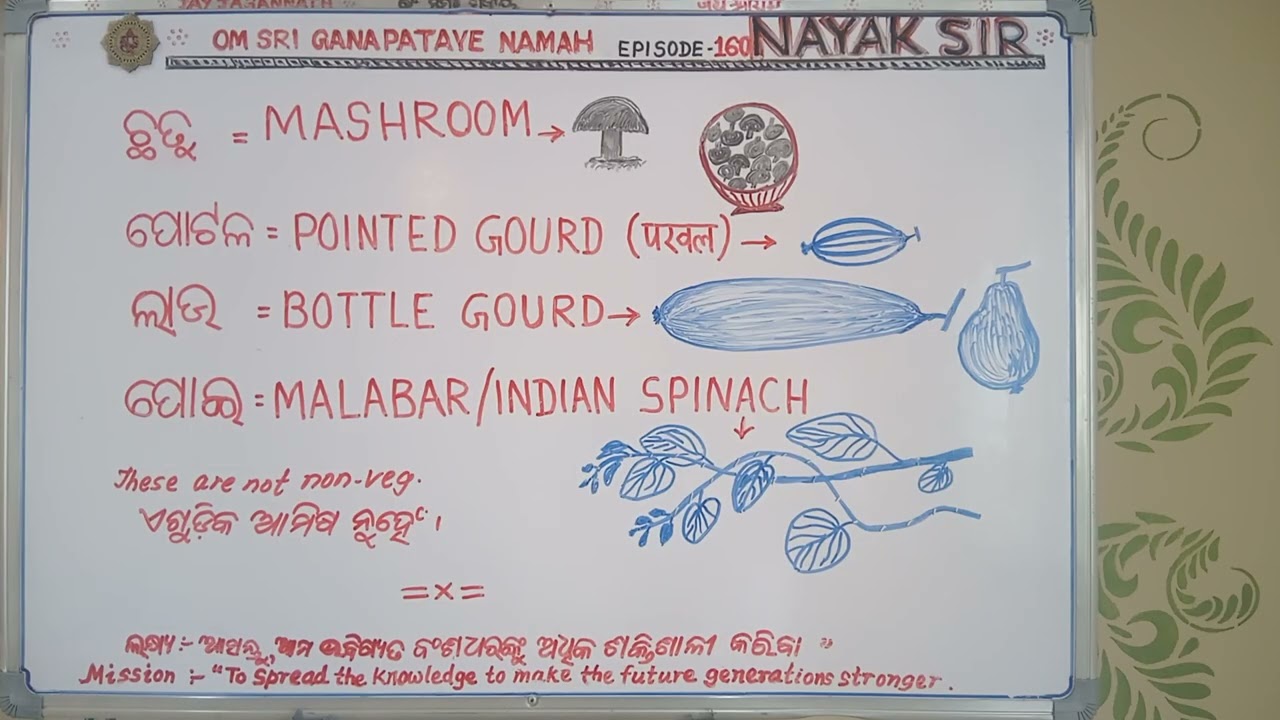 JAY JAGANNATH
OM SRI GANAPATAYE NAMAH EPISODE-160 NAYAK SIR
ଛତୁ = MASHROOM →
ପୋଟଳ = POINTED GOURD (परवल) →
ଲାଉ = BOTTLE GOURD →
ପୋଇ = MALABAR/INDIAN SPINACH
These are not non-veg.
ଏଗୁଡ଼ିକ ଆମିଷ ନୁହେଁ ।
=×=
ଲକ୍ଷ୍ୟ :- ଆସନ୍ତୁ, ଆମ ଭବିଷ୍ୟତ ବଂଶଧରଙ୍କୁ ଅଧିକ ଶକ୍ତିଶାଳୀ କରିବା "
Mission :- "To spread the knowledge to make the future generations stronger.